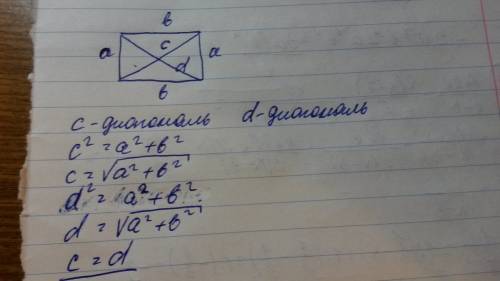 в
a c a
d
в
c-диагональ d-диагональ
c² = a² + в²
c = √a² + в²
d² = a² + в²
d = √a² + в²
c = d